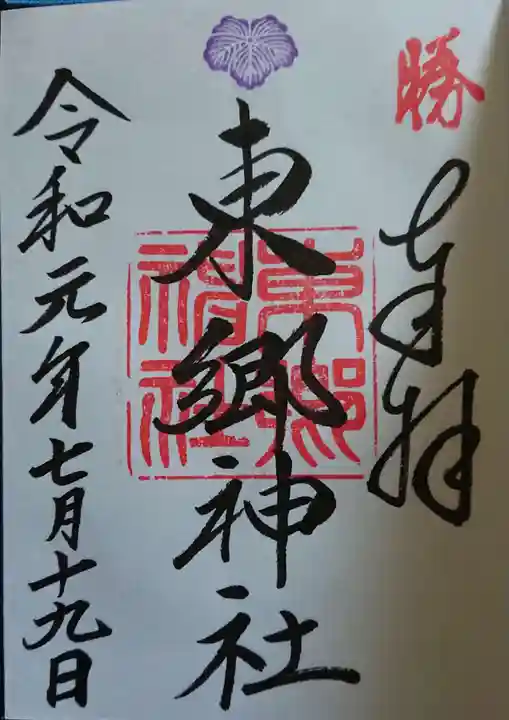 勝
奉拝
東郷神社
東郷
神社
令和元年七月十九日